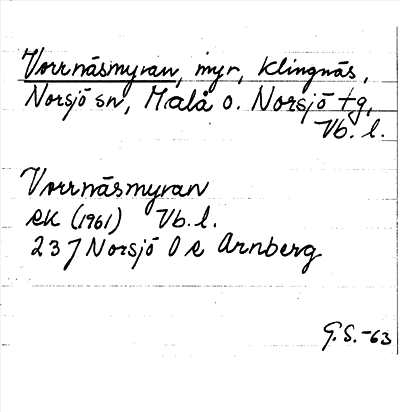 Vorrnäsmyran, myr, Klingnäs,
Norsjö sn, Malå o. Norsjö tg,
Vb. l.
Vorrnäsmyran
ek (1961) Vb. l.
23 J Norsjö Arnberg
G.S. -63